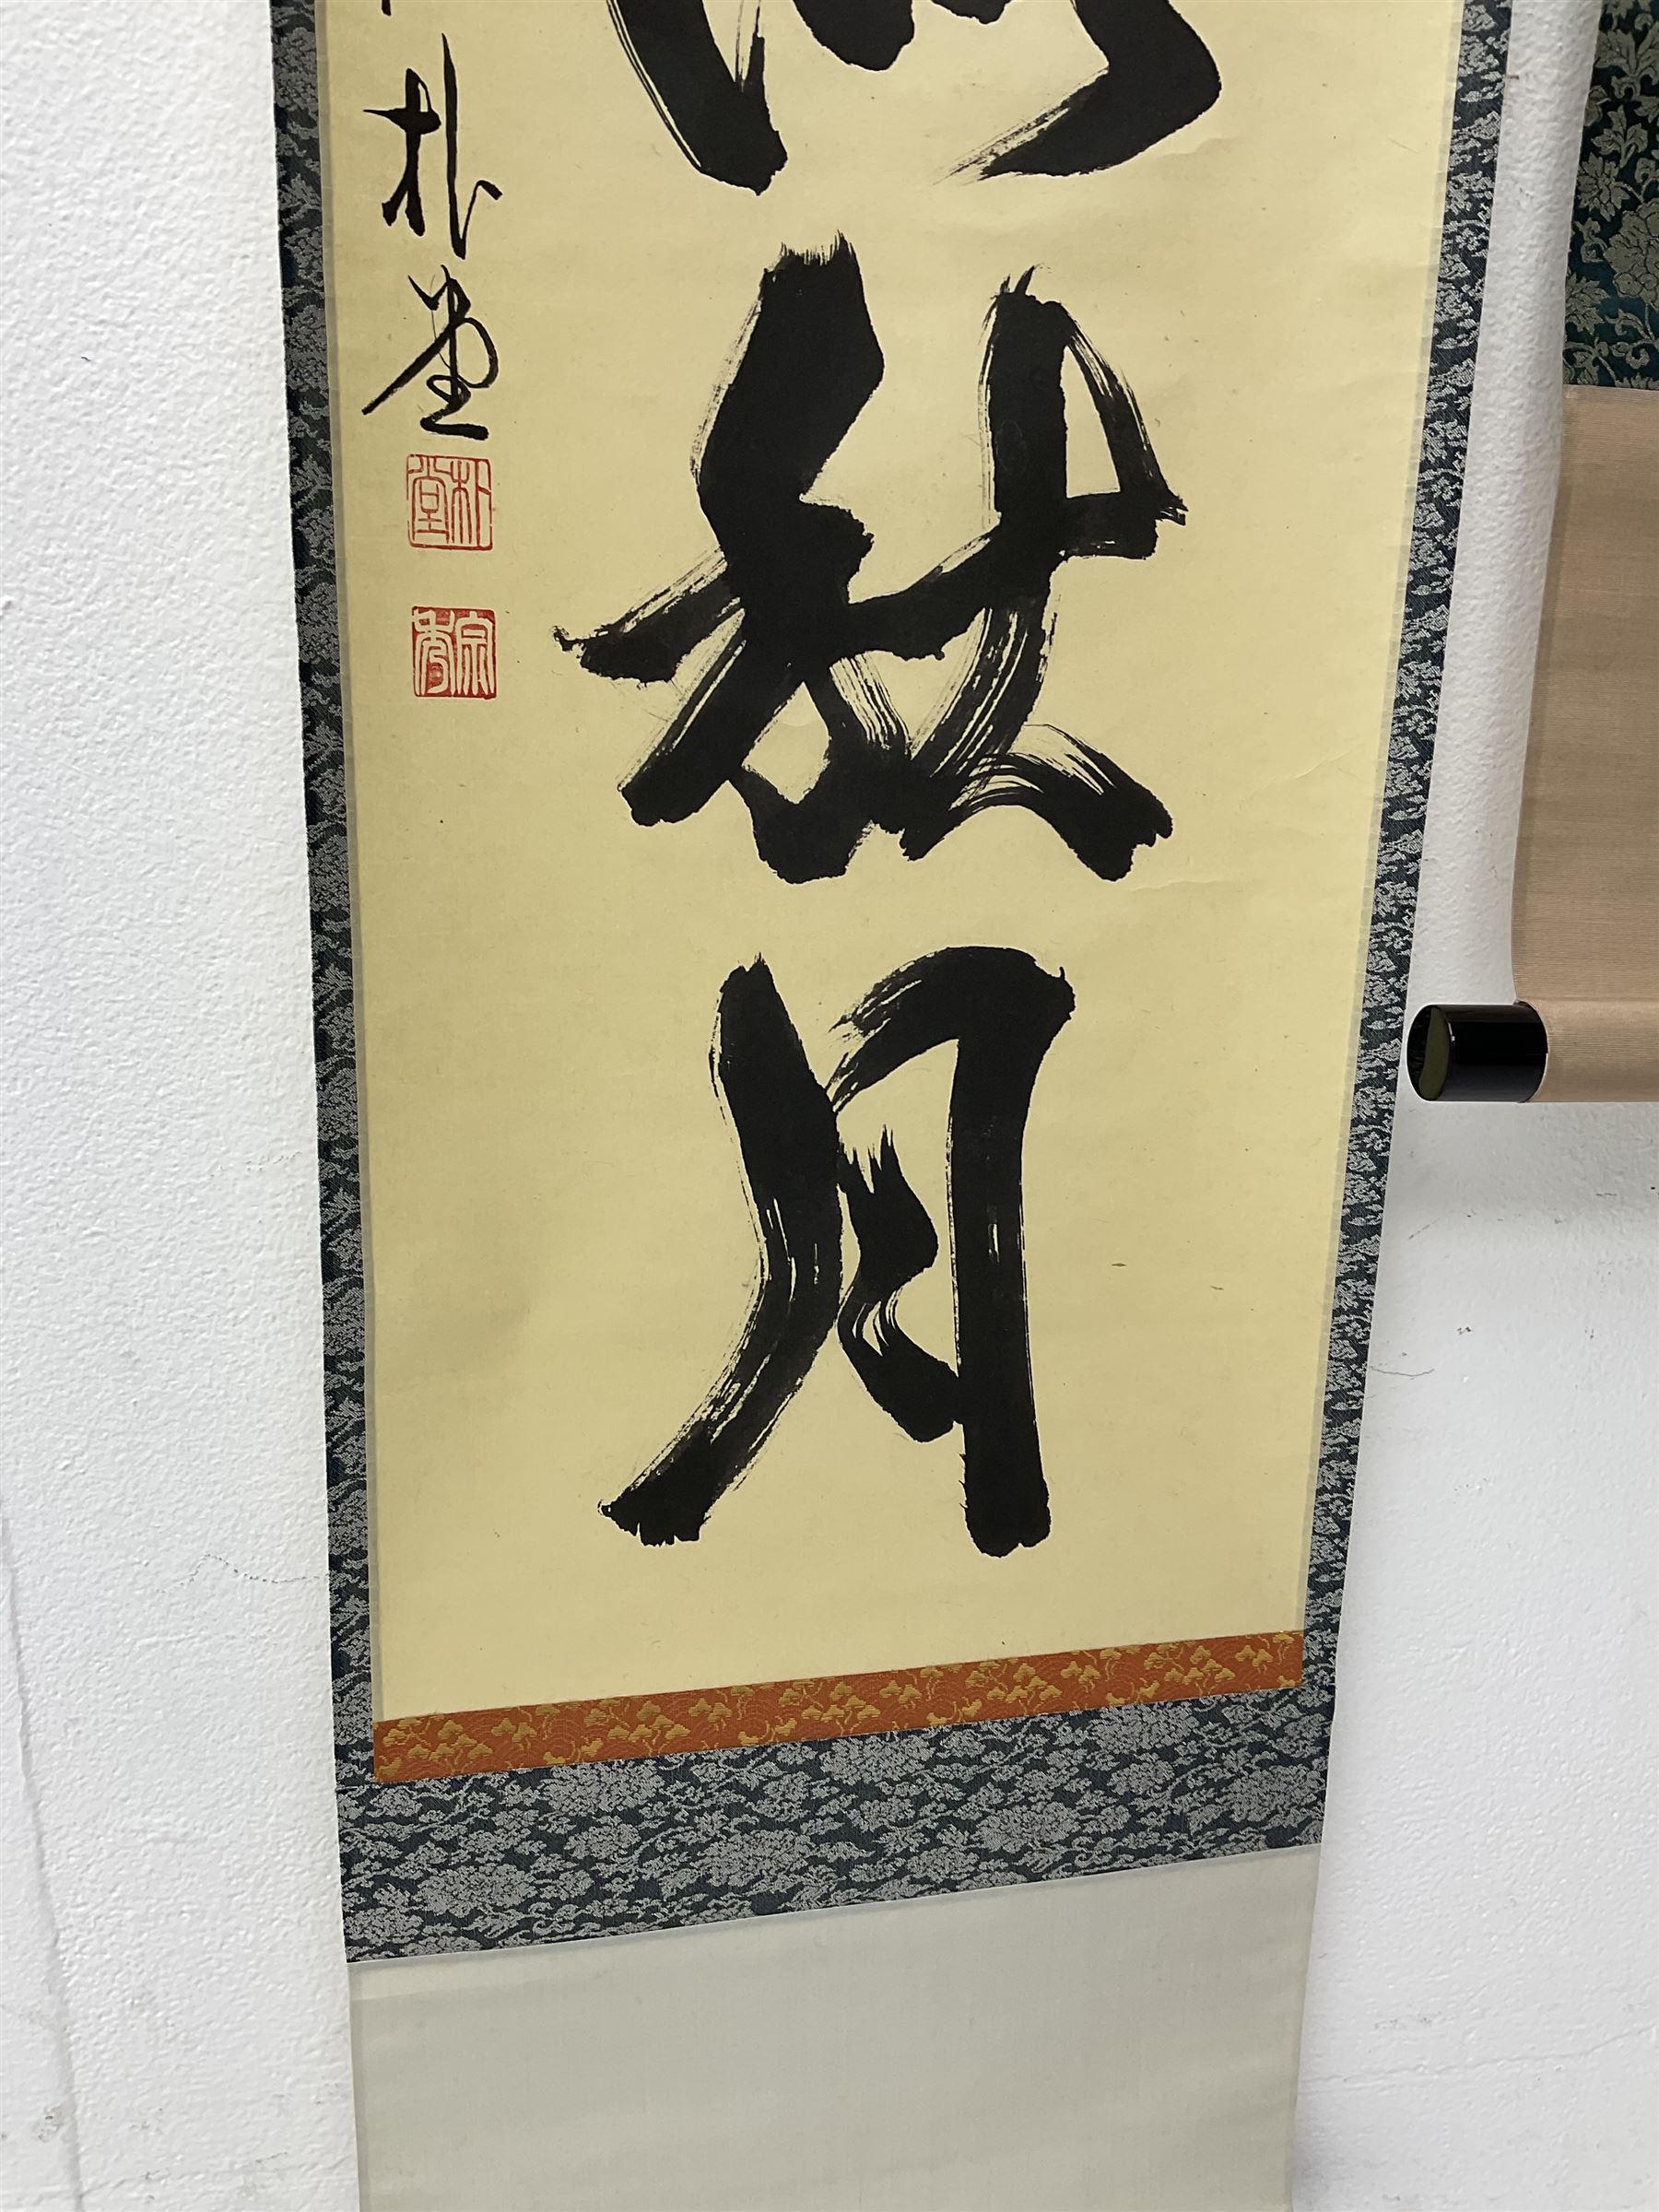 秋月
朴堂
朴堂
宗秀